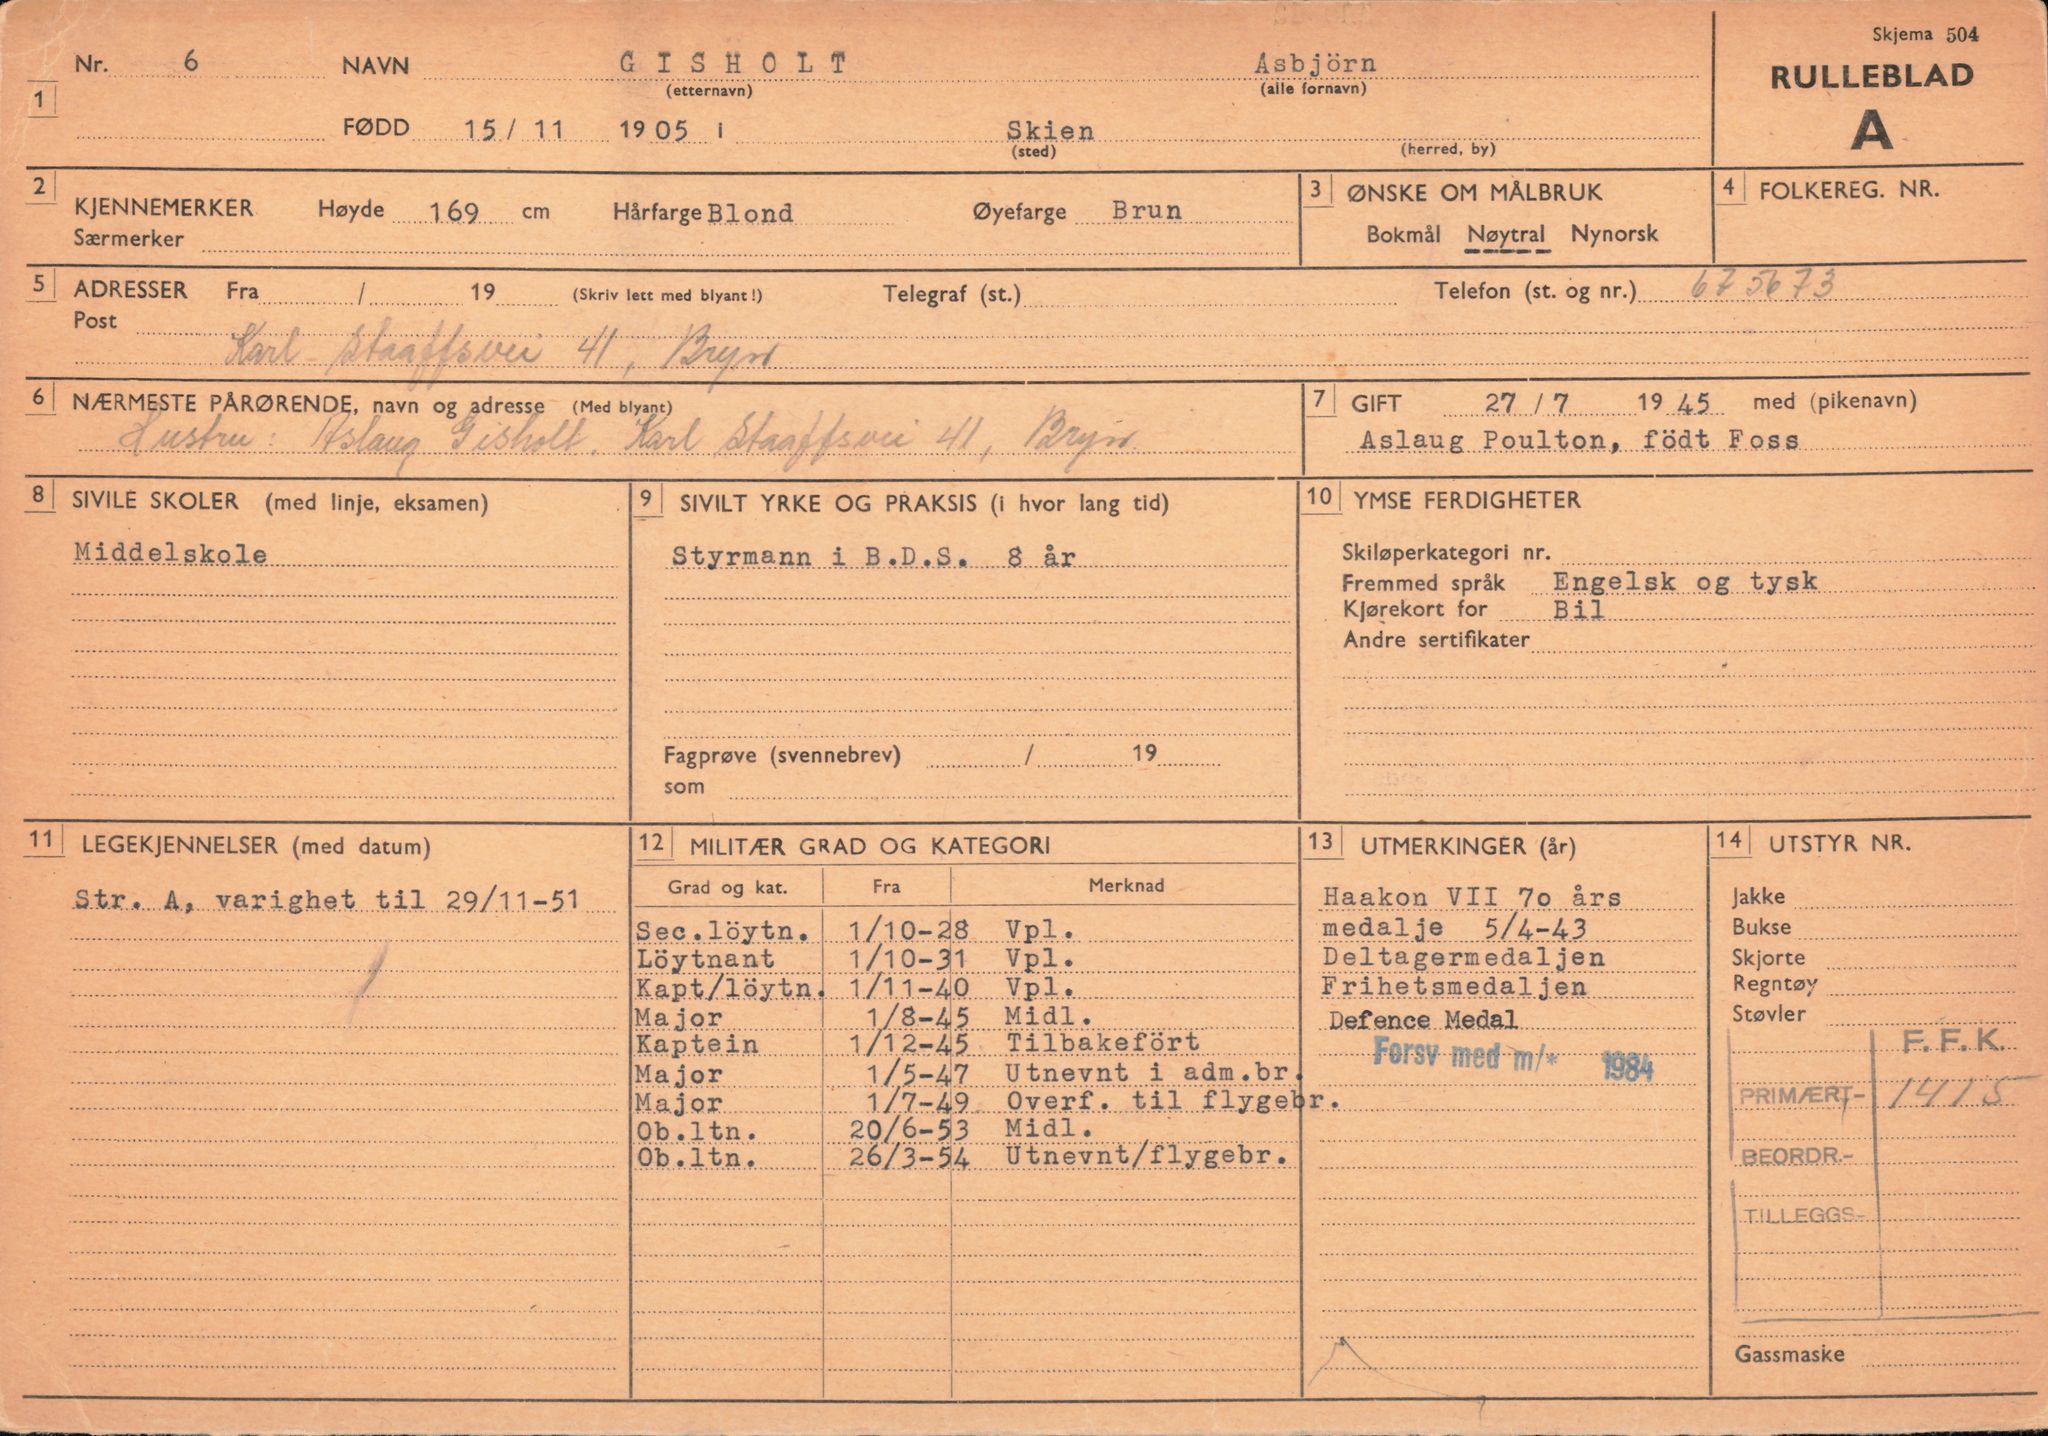 Skjema 504
RULLEBLAD
A
1 Nr. 6 NAVN GISHOLT Asbjörn
(etternavn) (alle fornavn)
FØDD 15 / 11 1905 i Skien
(sted) (herred, by)
2 KJENNEMERKER Høyde 169 cm Hårfarge Blond Øyefarge Brun
Særmerker
3 ØNSKE OM MÅLBRUK
Bokmål Nøytral Nynorsk
4 FOLKEREG. NR.
5 ADRESSER Fra / 19 (Skriv lett med blyant!) Telegraf (st.) Telefon (st. og nr.) 675673
Post
Karl Staaffsvei 41, Bryn
6 NÆRMESTE PÅRØRENDE, navn og adresse (Med blyant)
Hustru: Aslaug Gisholt. Karl Staaffsvei 41, Bryn
7 GIFT 27 / 7 1945 med (pikenavn)
Aslaug Poulton, födt Foss
8 SIVILE SKOLER (med linje, eksamen)
Middelskole
9 SIVILT YRKE OG PRAKSIS (i hvor lang tid)
Styrmann i B.D.S. 8 år
Fagprøve (svennebrev) / 19
som
10 YMSE FERDIGHETER
Skiløperkategori nr.
Fremmed språk Engelsk og tysk
Kjørekort for Bil
Andre sertifikater
11 LEGEKJENNELSER (med datum)
Str. A, varighet til 29/11-51
12 MILITÆR GRAD OG KATEGORI
Grad og kat. Fra Merknad
Sec.löytn. 1/10-28 Vpl.
Löytnant 1/10-31 Vpl.
Kapt/löytn. 1/11-40 Vpl.
Major 1/8-45 Midl.
Kaptein 1/12-45 Tilbakefört
Major 1/5-47 Utnevnt i adm.br.
Major 1/7-49 Overf. til flygebr.
Ob.ltn. 20/6-53 Midl.
Ob.ltn. 26/3-54 Utnevnt/flygebr.
13 UTMERKINGER (år)
Haakon VII 7o års
medalje 5/4-43
Deltagermedaljen
Frihetsmedaljen
Defence Medal
Forsv med m/* 1984
14 UTSTYR NR.
Jakke
Bukse
Skjorte
Regntøy
Støvler
F.F.K.
PRIMÆRT- 1415
BEORDR.-
TILLEGGS-
Gassmaske